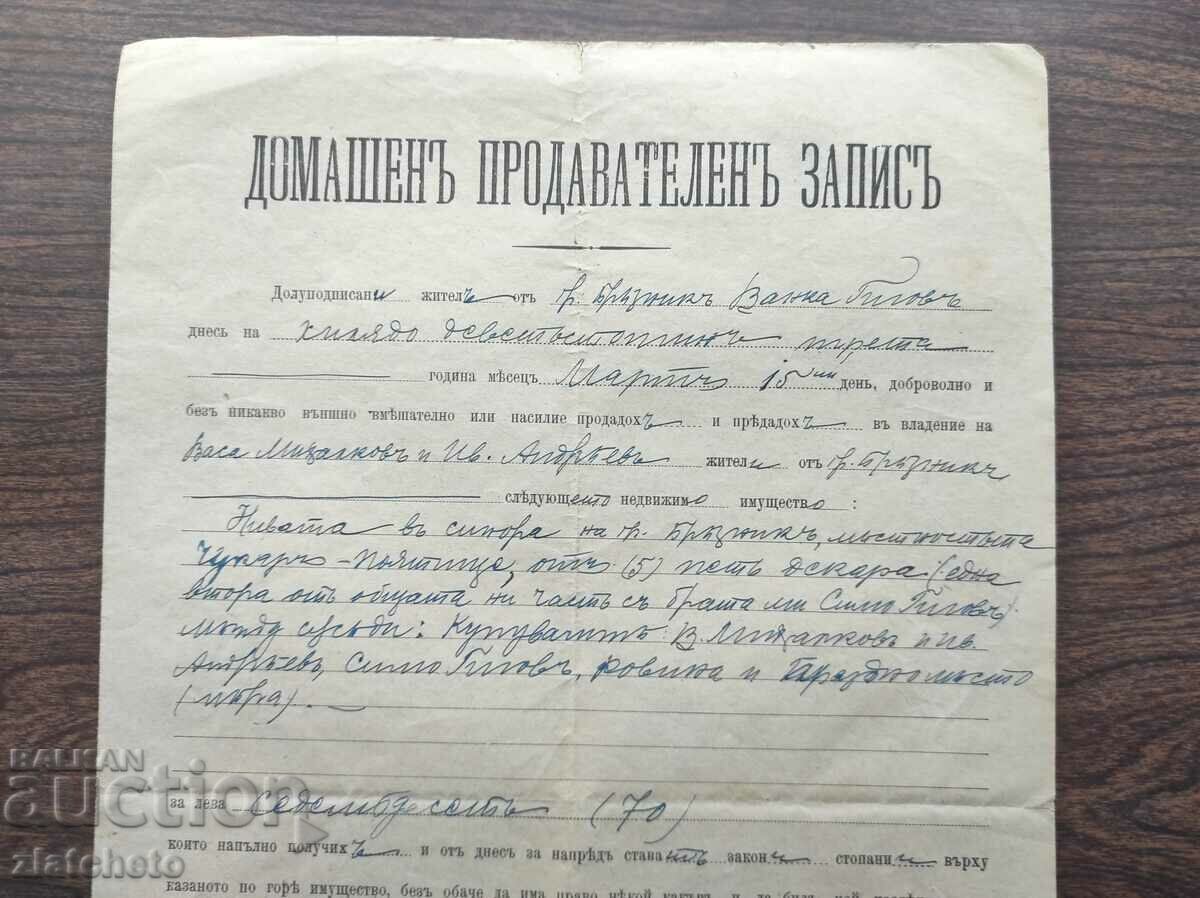 ДОМАШЕНЪ ПРОДАВАТЕЛЕНЪ ЗАПИСЪ
Долуподписани жителъ отъ гр. Брѣзникъ Ванка Гиговъ
днесь на хилядо деветьстотинъ трета
година мѣсецъ Мартъ 15 ий день, доброволно и
безъ никакво външно вмѣшателно или насилие продадохъ и прѣдадохъ въ владение на
Васа Михалковъ и Ив. Андрѣевъ жители отъ гр. Брѣзникъ
слѣдующето недвижимо имущество :
Нивата въ синора на гр. Брѣзникъ, мѣстностьта
отъ (5) петь декара (една
втора отъ общата ни часть съ брата ми Симо Гиговъ)
между съсѣди: Купувачитѣ В. Михалковъ и Ив.
Андрѣевъ, Симо Гиговъ, ровина и праздно мѣсто
(мѣра). —
за лева Седемдесеть (70)
които напълно получихъ и отъ днесъ за напрѣдъ ставатъ закони стопани върху
казаното по горѣ имущество, безъ обаче да има право нѣкой
BALKAN
auction
zlatcheto